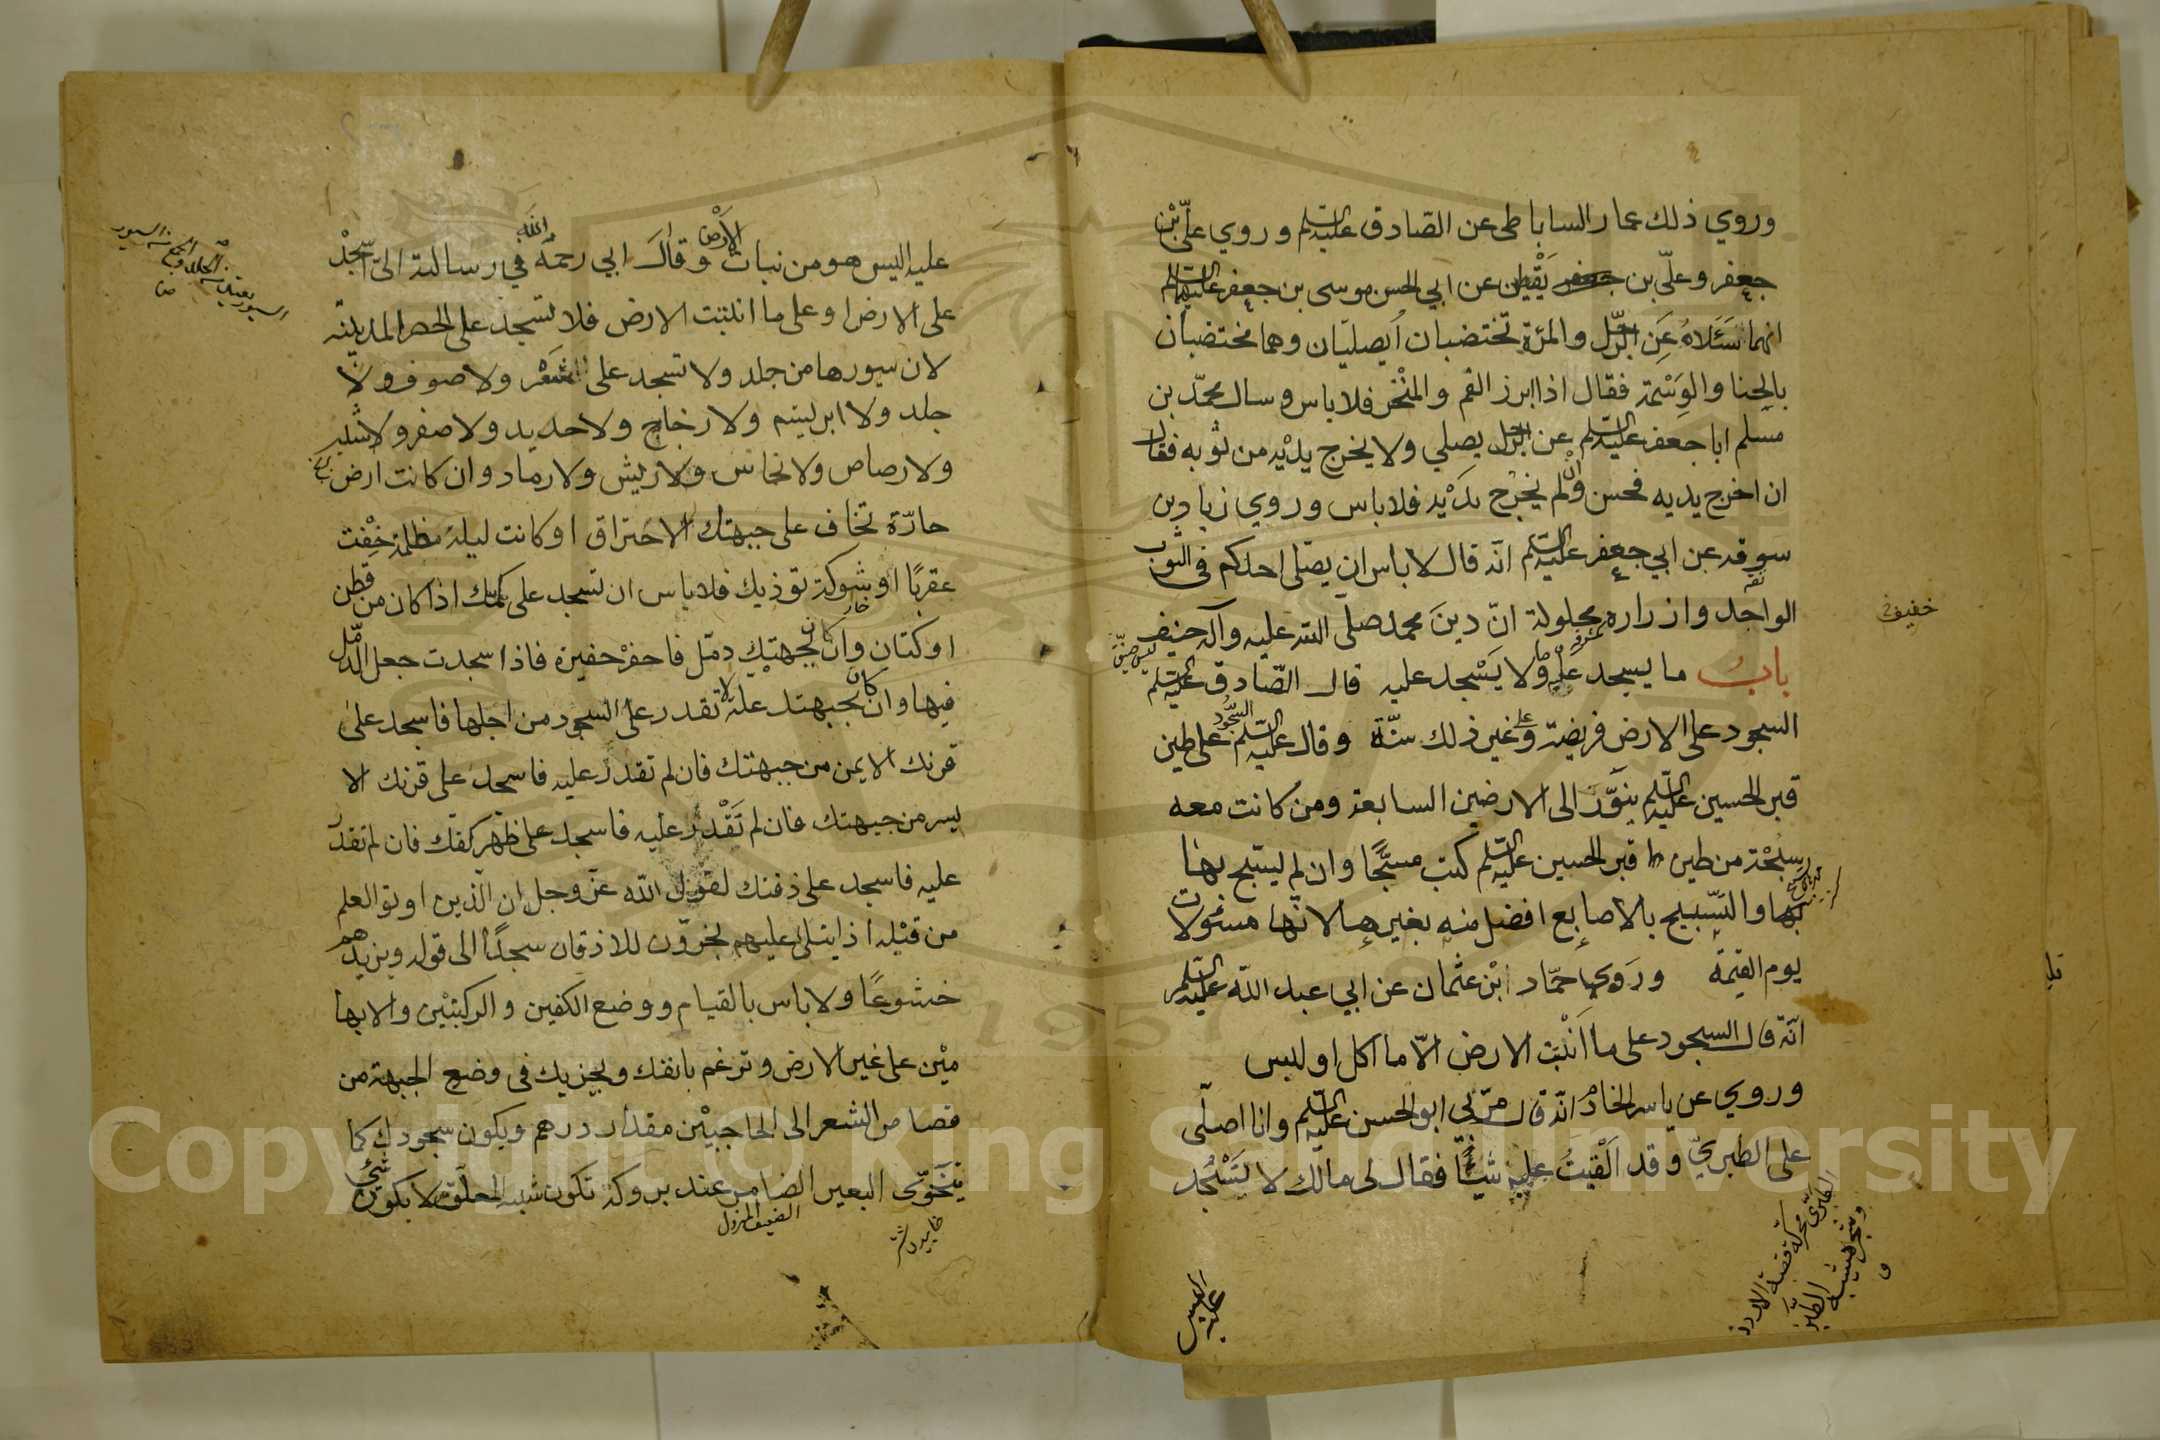 وروي ذلك عمار الساباطي عن الصّادق عليه السّلم وروي عليّ بْن
جعفر وعليّ بن يَقْطِين عن ابي الحسن موسى بن جعفر عليهما السلم
انهما سَئَلاهُ عَنِ الرّجل والمرءة تختضبان أيصليّان وهما مختضبان
بالحِنا والوَسْمة فقال اذا ابرز الفم والمنْخر فلا باس وسال محمّد بن
مسلم ابا جعفر عليه السّلم عن الرجل يصلي ولا يخرج يديْه من ثوبه فقال
ان اخرج يديه فحسن وان لم يخرج يدَيْه فلا باس وروي زياد بن
سوقه عن ابي جعفر عليه السّلم انّه قال لا باس ان يصّلى احدكم فى الثوب
الواحد وازراره محلولة انّ دينَ محمد صلى الله عليه وآله حنيف
خفيف
بابُ ما يسجد عليْه وما لا يَسْجد عليه قال الصّادق عليه السّلم
السجود على الارض فريضة وعلى غير ذلك سنّة وقال عليه السّلم السّجود على طين
قبر الحسين عليه السّلم ينوّر الى الارضين السابعة ومن كانت معه
سبْحَة من طين قبر الحسين عليه السّلم كتب مسبّحًا وان لم يسبّح بها
بها والتسّبيح بالاصابع افضل منه بغيرها لانّها مسئولات
يوم القيمة وروى حمّاد بْن عثمان عن ابي عبد الله عليه السّلم
انّه قال السجود على ما انْبتت الارض الاّ ما اكل او لبس
وروي عن ياسر الخادم انّه قال مرّ بي ابو الحسن عليه السّلم وانا اصلّى
على الطبريّ وقد القَيْتُ عليه شيئًا فقال لى مالك لا تَسْجُد
الطبرىّ محركة قصبة الاردن
عليه اليس
عليه اليس هو من نبات الأرْض وقالَ ابي رحمه الله في رسالته الىّ اسجدْ
على الارض او على ما انبتت الارض فلا تسجد على الحصر المدينيّة
لان سيورها من جلد ولا تسجد على الشَعْر ولا صوف ولا
جلد ولا ابريسم ولا زجاج ولا حديد ولا صفر ولا شبه
ولا رصاص ولا نحاس ولا ريش ولا رماد وان كانت ارض
حارّة تخاف على جبهتك الاحتراق او كانت ليلة مظلمة خِفْت
عقربًا او شوكة توذيك فلا باس ان تسجد على كمّك اذا كان من قطن
او كتان وان كان بجبهتك دمّل فاحفرْ حفيرة فاذا سجدت جعل الدّمّل
فيها وان كان بجبهتك علة لا تقدر على السجود من اجلها فاسجد على
قرنك الايمن من جبهتك فان لم تقدر عليه فاسجد على قرنك الا
يسر من جبهتك فان لم تَقْدر عليه فاسجد على ظهر كفّك فان لم تقدر
عليه فاسجد على ذقنك لقول الله عزّ وجل ان الّذين اوتو العلم
من قبْله اذا يتلى عليهم يخرّون للاذقان سجدًا الى قوله ويزيدهم
خشوعًا ولا باس بالقيام ووضع الكفين والركبتيْن والابها
ميْن على غير الارض وترغم بانفك ويجزيك فى وضع الجبهة من
قصاص الشعر الى الحاجبيْن مقدار درهم ويكون سجودك كما
يتخوّى البعير الضامر عند بروكه تكون شبه المعلّق لا يكون شئ
الضعيف المهزول
Copyright © King Saud University
1957